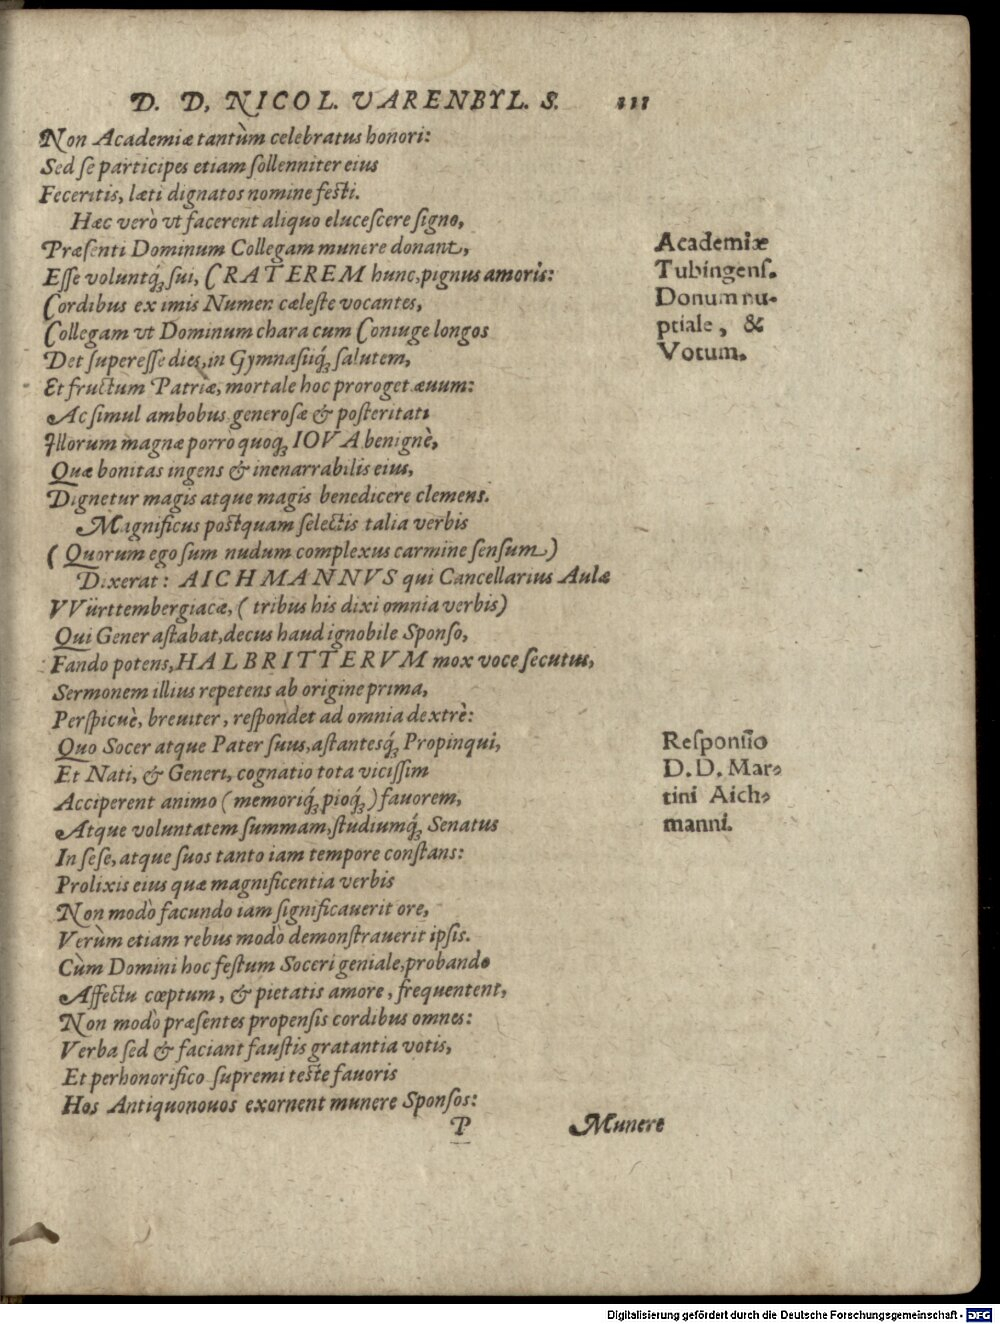 D. D. NICOL. VARENBYL. S. 111
Non Academiæ tantùm celebratus honori:
Sed ſe participes etiam ſollenniter eius
Feceritis, læti dignatos nomine feſti.
Hæc verò vt facerent aliquo eluceſcere ſigno,
Præſenti Dominum Collegam munere donant,
Eſſe voluntq́ꝫ ſui, CRATEREM hunc, pignus amoris:
Cordibus ex imis Numen cæleſte vocantes,
Collegam vt Dominum chara cum Coniuge longos
Det ſupereſſe dies, in Gymnaſiiq́ꝫ ſalutem,
Et fructum Patriæ, mortale hoc proroget æuum:
Ac ſimul ambobus generoſæ & poſteritati
Illorum magnæ porro quoqꝫ IOVA benignè,
Quæ bonitas ingens & inenarrabilis eius,
Dignetur magis atque magis benedicere clemens.
Magnificus poſtquam ſelectis talia verbis
(Quorum ego ſum nudum complexus carmine ſenſum)
Dixerat: AICHMANNVS qui Cancellarius Aulæ
VVürttembergiacæ, (tribus his dixi omnia verbis)
Qui Gener aſtabat, decus haud ignobile Sponſo,
Fando potens, HALBRITTERVM mox voce ſecutus,
Sermonem illius repetens ab origine prima,
Perſpicuè, breuiter, reſpondet ad omnia dextrè:
Quo Socer atque Pater ſuus, aſtantesq́ꝫ Propinqui,
Et Nati, & Generi, cognatio tota viciſſim
Acciperent animo (memoriq́ꝫ pioq́ꝫ) fauorem,
Atque voluntatem ſummam, ſtudiumq́ꝫ Senatus
In ſeſe, atque ſuos tanto iam tempore conſtans:
Prolixis eius quæ magnificentia verbis
Non modò facundo iam ſignificauerit ore,
Verùm etiam rebus modò demonſtrauerit ipſis.
Cùm Domini hoc feſtum Soceri geniale, probando
Affectu cœptum, & pietatis amore, frequentent,
Non modò præſentes propenſis cordibus omnes:
Verba ſed & faciant fauſtis gratantia votis,
Et perhonorifico ſupremi teſte fauoris
Hos Antiquonouos exornent munere Sponſos:
P Munere
Academiæ
Tubingenſ.
Donum nu-
ptiale, &
Votum.
Reſponſio
D. D. Mar-
tini Aich-
manni.
Digitalisierung gefördert durch die Deutsche Forschungsgemeinschaft - DFG